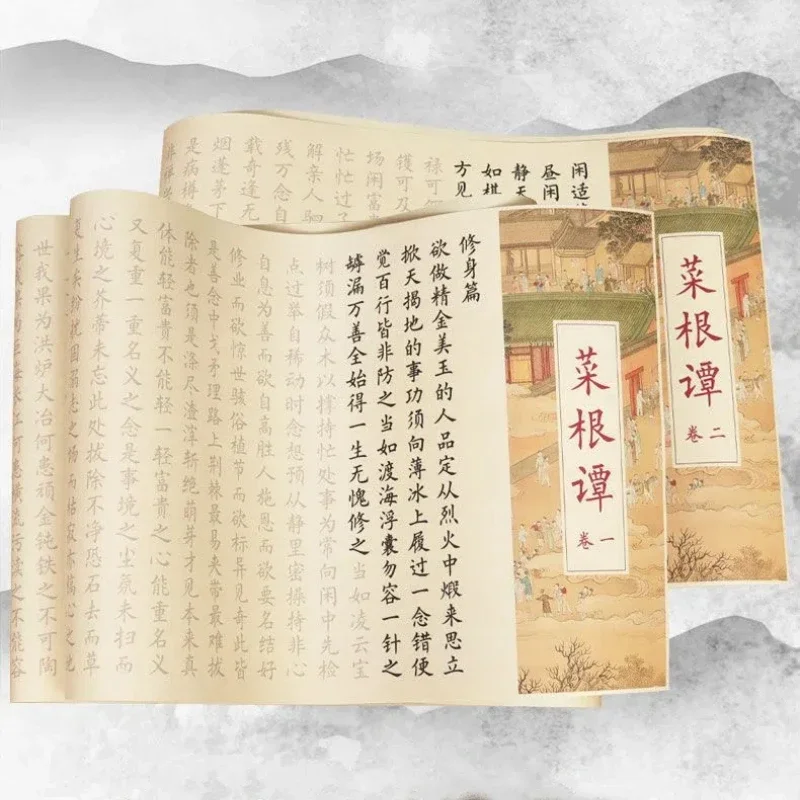 菜根谭
卷二
闲适
昼闲
静天
如棋
方见
禄可
镬可及
场闲富
忙忙过
解亲人
残万念自
载奇逢无
烟蓬茅下
是病樽
菜根谭
卷一
修身篇
欲做精金美玉的人品定从烈火中煅来思立
掀天揭地的事功须向薄冰上履过一念错便
觉百行皆非防之当如渡海浮囊勿容一针之
罅漏万善全始得一生无愧修之当如凌云宝
树须假众木以撑持忙处事为常向闲中先检
点过举自稀动时念想预从静里密操持非心
自息为善而欲自高胜人施恩而欲要名结好
修业而欲惊世骇俗植节而欲标异见奇此皆
是善念中戈矛理路上荆棘最易夹带最难拔
除者也须是涤尽渣滓斩绝萌芽才见本来真
体能轻富贵不能轻一轻富贵之心能重名义
又复重一重名义之念是事境之尘氛未扫而
心境之芥蒂未忘此处拔除不净恐石去而草
复生矣纷扰固溺志之场而枯寂亦槁心之地
世我果为洪炉大冶何患顽金钝铁之不可陶
我果为巨海长江何患横流污渎之不能容